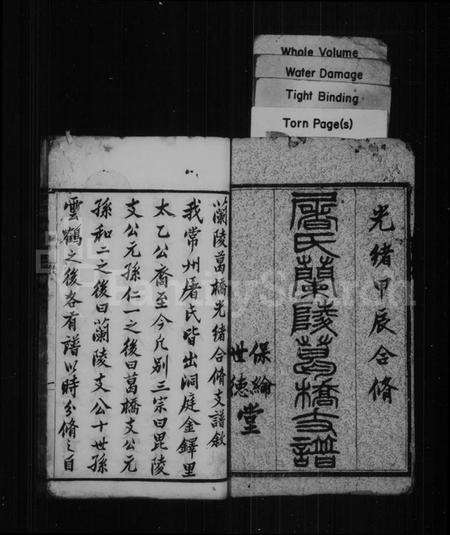 Whole Volume
Water Damage
Tight Binding
Torn Page(s)
光緒甲辰合脩
屠氏蘭陵葛橋支譜
保綸
世德
堂
蘭陵葛橋光緒合脩支譜敘
我常州屠氏皆出洞庭金鐸里
太乙公裔至今凡別三宗曰毘陵
支公元孫仁一之後曰葛橋支公元
孫和二之後曰蘭陵支公十世孫
雲鶴之後各有譜以時分脩之自
FamilySearch